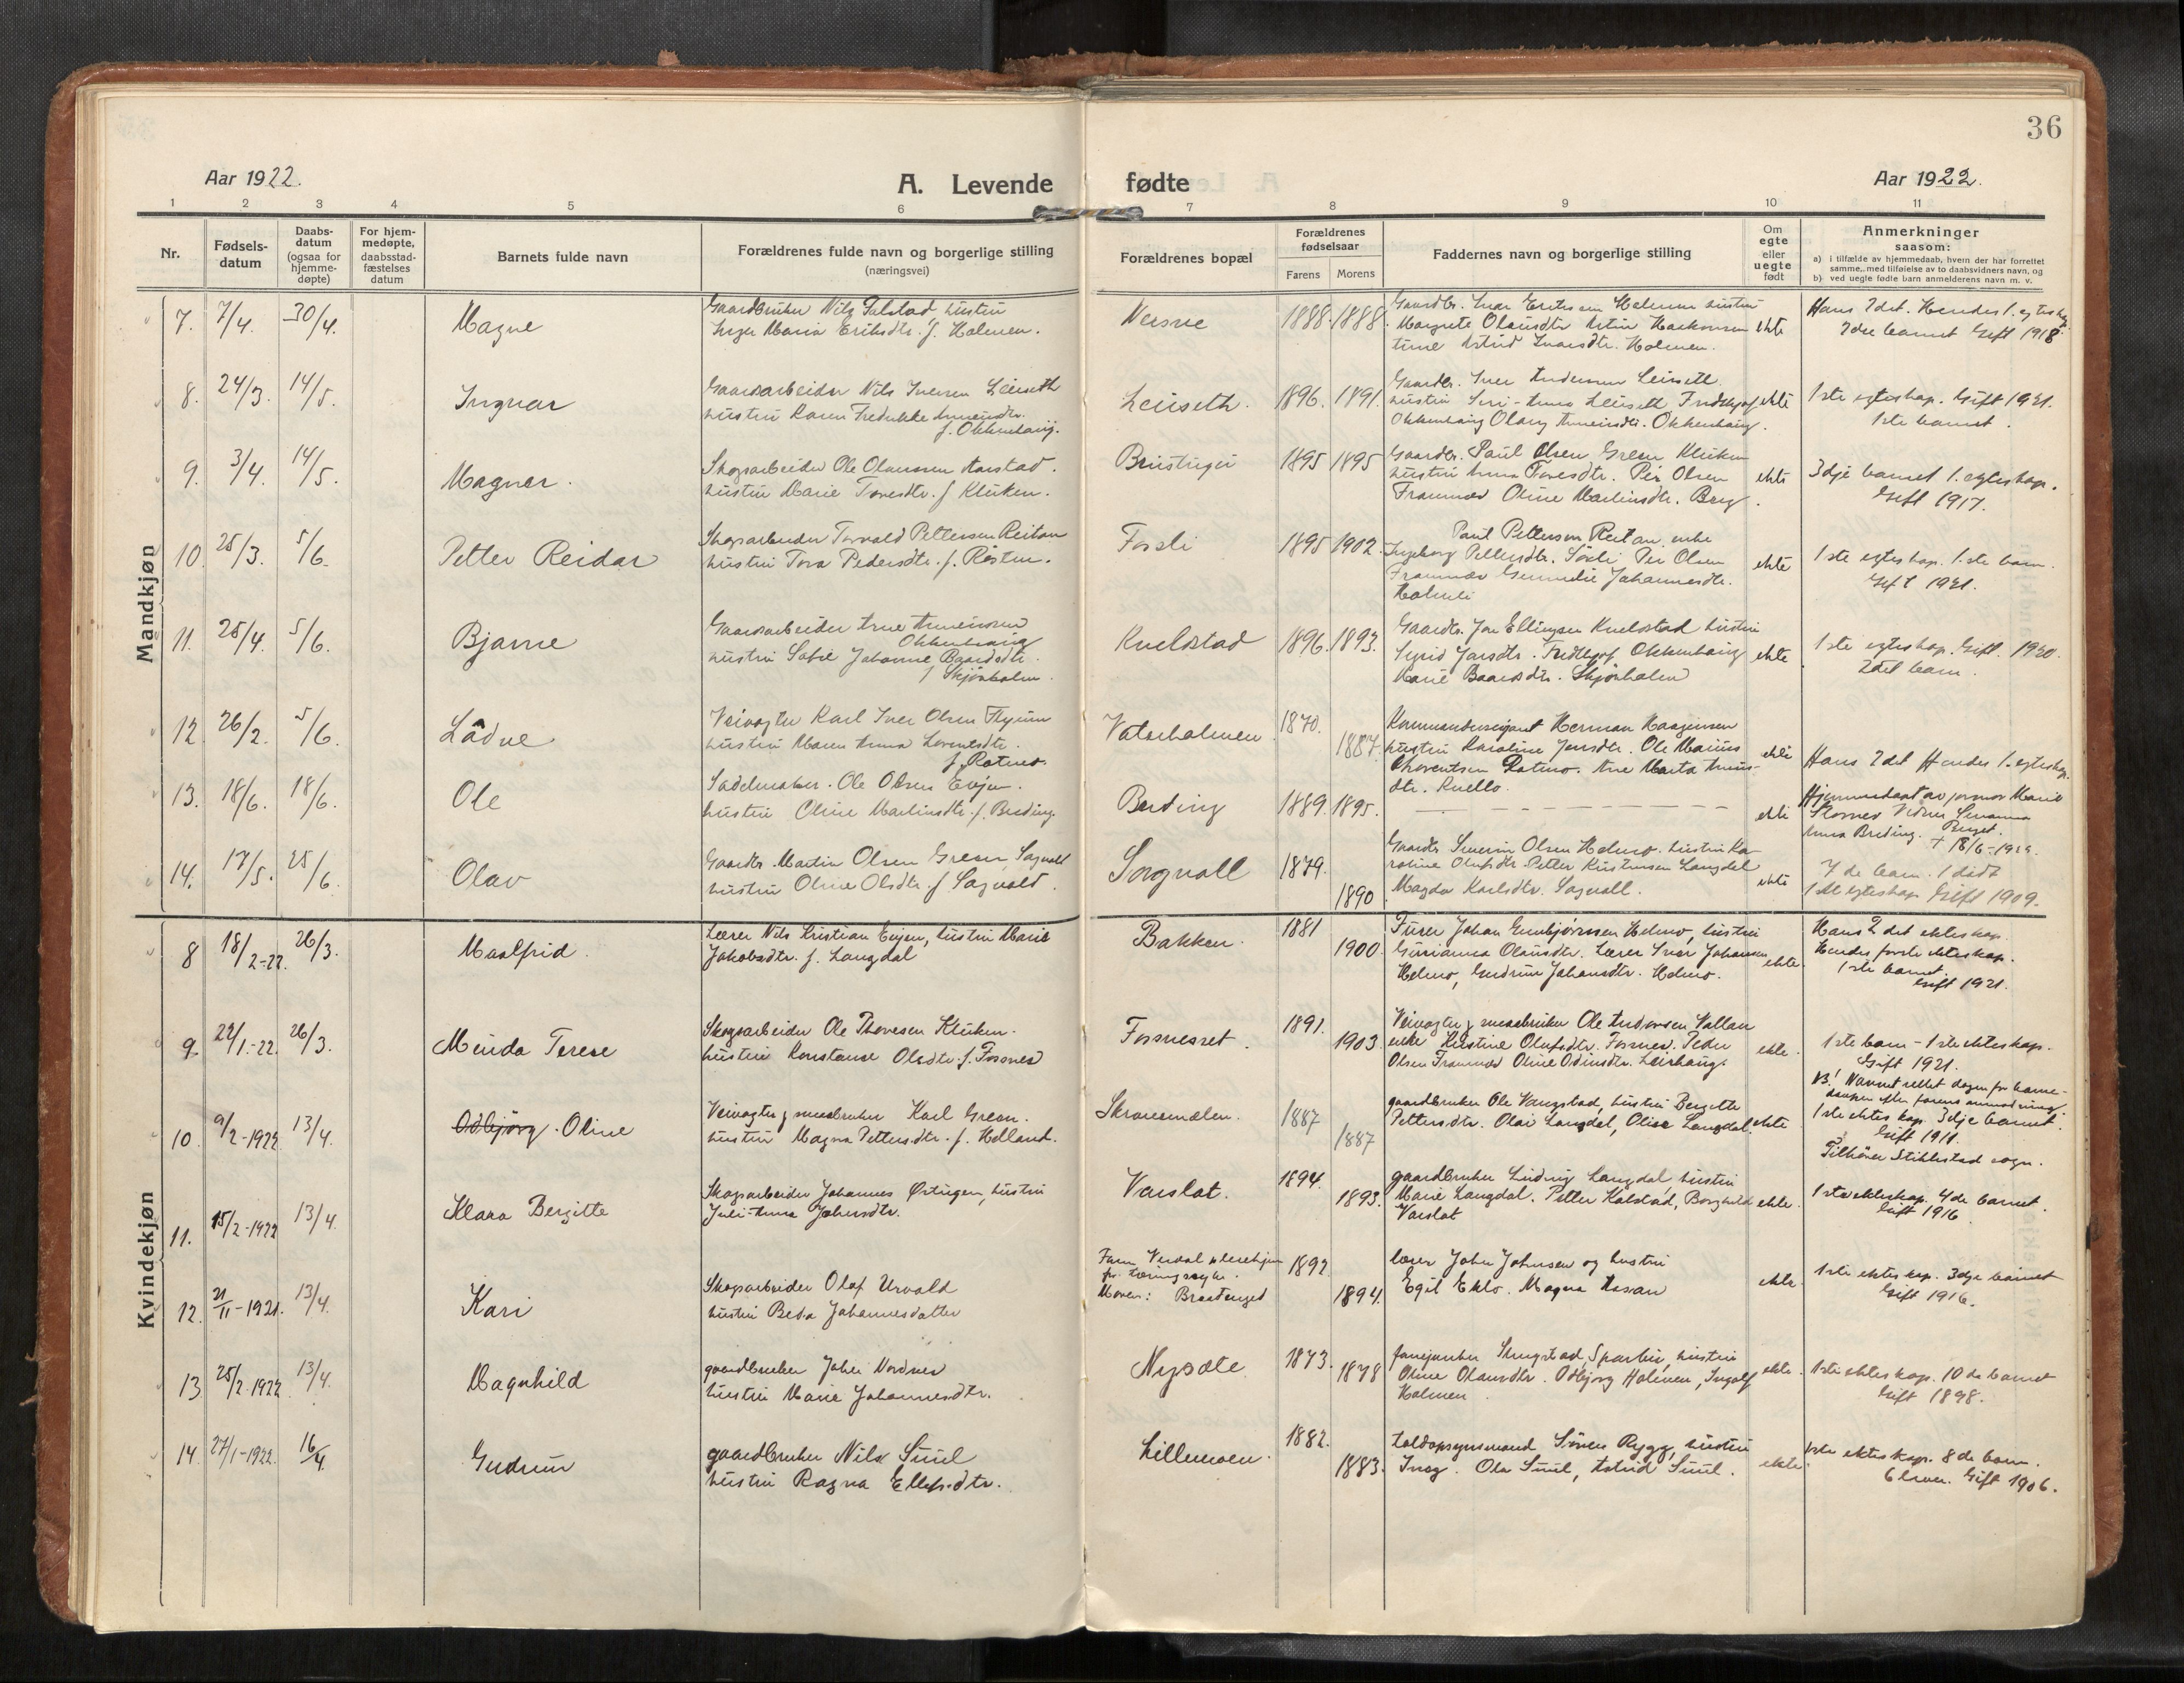 36
Aar 1922.
A. Levende fødte
Aar 1922.
1 2 3 4 5 6 7 8 9 10 11
Nr.
Fødsels-
datum
Daabs-
datum
(ogsaa for
hjemme-
døpte)
For hjem-
medøpte,
daabsstad-
fæstelses
datum
Barnets fulde navn
Forældrenes fulde navn og borgerlige stilling
(næringsvei)
Forældrenes bopæl
Forældrenes
fødselsaar
Farens Morens
Faddernes navn og borgerlige stilling
Om
egte
eller
uegte
født
Anmerkninger
saasom:
a) i tilfælde av hjemmedaab, hvem der har forrettet
samme, med tilføielse av to daabsvidners navn, og
b) ved uegte fødte barn anmelderens navn m. v.
Mandkjøn
7. 7/4. 30/4. Magne
Gaardbruker Nils hustru
Inger Maria Eriksdtr. f. Holmen.
1888. 1888.
Margrete Olausdtr
Astrid Ivarsdtr. Holmen.
ekte
Hans 2det. Hendes 1. egteskap.
2det barnet Gift 1918.
8. 24/3. 14/5. Ingvar
Gaardsarbeider Nils Iversen Leirseth
hustru Karen Fredrikke
f. Okkenhaug.
Leirseth. 1896. 1891.
Gaardbr. Iver Andersen Leirseth
hustru Seri-Anna Leirseth Fridthjof
Okkenhaug Olaug Okkenhaug.
ekte
1ste egteskap. Gift 1921.
1ste barnet.
9. 3/4. 14/5. Magnar.
Skogsarbeider Ole Olaussen Aarstad.
hustru Marie Toresdtr. f Kluken.
1895 1895
Gaardbr. Paul Olsen Green Kluken
hustru Anna Toresdtr. Per Olsen
Framnæs Oline Martinsdtr. Berg.
ekte
3dje barnet 1. egteskap.
Gift 1917.
10. 25/3. 5/6. Petter Reidar
Skogsarbeider Torvald Pettersen Reitan
hustru Tora Pedersdtr. f. Rösten.
Fosli 1895 1902.
Paul Pettersen Reitan, enke
Ingeborg Pettersdtr. Per Olsen
Framnæs Johannesdtr.
Holmli
ekte
1ste egteskap. 1ste barn.
Gift 1921.
11. 25/4. 5/6. Bjarne
Gaardsarbeider Arne
Okkenhaug
hustru Sofie Johanne Baardsdtr.
f Skjörholm.
Kvelstad 1896. 1893.
Gaardbr. Jon Ellingsen Kvelstad hustru
Sigrid Jonsdtr. Fridthjof Okkenhaug
Marie Baardsdtr. Skjörholm
ekte
1ste egteskap. Gift. 1920.
2det barn.
12 26/2. 5/6. Lådve
Veivogter Karl Iver Olsen
hustru Maren Anna Lorentsdtr.
f. Rotmo.
Vaterholmen 1870. 1887.
Kommandersergeant Herman Haagensen
hustru Karoline Jensdtr. Ole Marius
Lorentsen Rotmo. Ane Marta
dtr. Kvello.
ekte
Hans 2det Hendes 1. egteskap.
13. 18/6. 18/6. Ole
Sadelmaker. Ole Olsen Evjen.
hustru Oline Martinsdtr. f. Breding.
Breding 1889. 1895.
ekte
Hjemmedøpt av jormor Marie
Anna Breding.
+ 18/6-1922.
14. 17/5. 25/6. Olav
Gaardbr. Martin Olsen Green, Sagvold
hustru Oline Olsdtr. f Sagvold.
Sagvoll 1879. 1890
Gaardbr Severin Olsen Helmo. hustru Ka-
roline Olufsdtr Petter Kristensen Langdal
Magda Karlsdtr. Sagvoll.
ekte
7de barn. 1 dødt
1ste egteskap Gift 1909.
Kvindekjøn
8 18/2-22. 26/3. Maalfrid.
Lærer Nils Kristian Evjen, hustru Marie
Jakobsdtr. f. Langdal
Bakken. 1881 1900.
Furer Johan Gunbjørnsen Helmo, hustru
Gurianna Olausdtr. Lærer Ivar Johansen
Helmo, Gudrun Johansdtr. Helmo.
ekte.
Hans 2det ekteskap.
Hendes første ekteskap.
1ste barnet.
Gift 1921.
9. 22/1-22. 26/3. Minda Terese
Skogsarbeider Ole Thoresen Kluken.
hustru Konstanse Olsdtr. f. Fosnes
Fosnesset. 1891. 1903.
Veivogter j smaabruker Ole Andersen Vollan
enke Kirstine Olufsdtr. Fosnes. Peder
Olsen Framnæs Oline Odinsdtr. Leirhaug.
ekte.
1ste barn - 1ste ekteskap.
Gift 1921.
10. 9/2-1922. 13/4. Odbjørg. Oline
Veivogter j smaabruker Karl Green.
hustru Magna Pettersdtr. f. Helland.
1887 1887
gaardbruker Ole Vangstad, hustru Bergitte
Pettersdtr. Olai Langdal, Olise Langdal.
ekte
NB! Navnet rettet dagen før barne-
daapen efter farens anmodning.
1ste ekteskap. 3dje barnet.
Gift 1911.
Tilhører Stiklestad sogn.
11. 15/2-1922 13/4. Klara Bergitte
Skogsarbeider Johannes Østugen, hustru
Juli-Anna Johnsdtr.
Varslot. 1894. 1893.
gaardbruker Ludvig Langdal hustru
Marie Langdal. Petter Kolstad, Borghild
Varslot
ekte.
1ste ekteskap. 4de barnet.
Gift 1916.
12. 21/11-1921. 13/4. Kari
Skogsarbeider Olaf Urvold
hustru Beda Johannesdatter
Faren Verdal pleiehjem
for tæringssyke.
Moren:
1892 1894.
lærer John Johnsen og hustru
Egil Eklo. Magna
ekte.
1ste ekteskap. 3dje barnet
Gift 1916.
13 25/2-1922. 13/4. Magnhild
gaardbruker Johan Nordnes
hustru Marie Johannesdtr.
1873. 1878
fanejunker Sparbu, hustru
Oline Olausdtr. Odbjørg Holmen, Ingolf
Holmen.
ekte.
1ste ekteskap. 10de barnet
Gift 1898.
14. 27/1-1922. 16/4. Gudrun
gaardbruker Nils Suul
hustru Ragna Ellefsdtr.
Lillemoen. 1882. 1883.
toldopsynsmand Søren Rygg, hustru
Inag. Ola Suul, Astrid Suul.
ekte.
1ste ekteskap. 8de barn.
6 lever. Gift 1906.